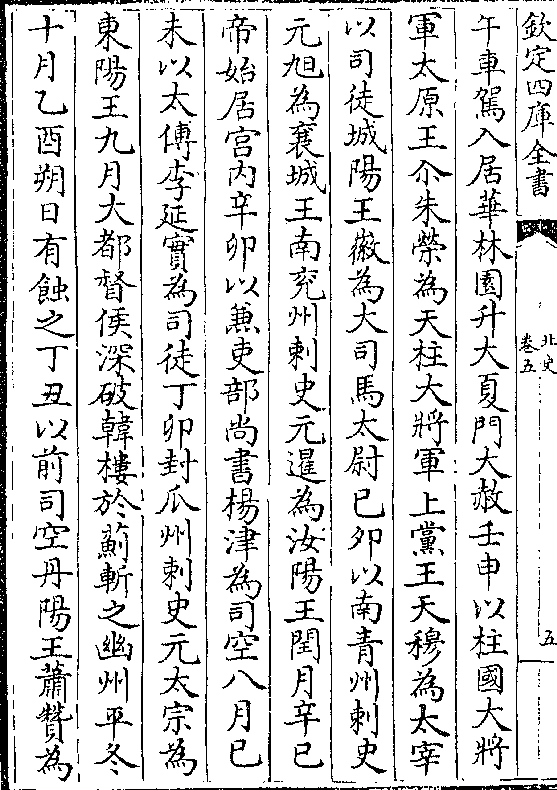 欽定四庫全書
北史
卷五
五
午車駕入居華林園升大夏門大赦壬申以柱國大將
軍太原王尒朱榮為天柱大將軍上黨王天穆為太宰
以司徒城陽王徽為大司馬太尉已夘以南青州刺史
元旭為襄城王南兖州刺史元暹為汝陽王閏月辛已
帝始居宫内辛夘以兼吏部尚書楊津為司空八月已
未以太傅李延實為司徒丁夘封瓜州刺史元太宗為
東陽王九月大都督侯深破韓樓於薊斬之幽州平冬
十月乙酉朔日有蝕之丁丑以前司空丹陽王蕭贊為